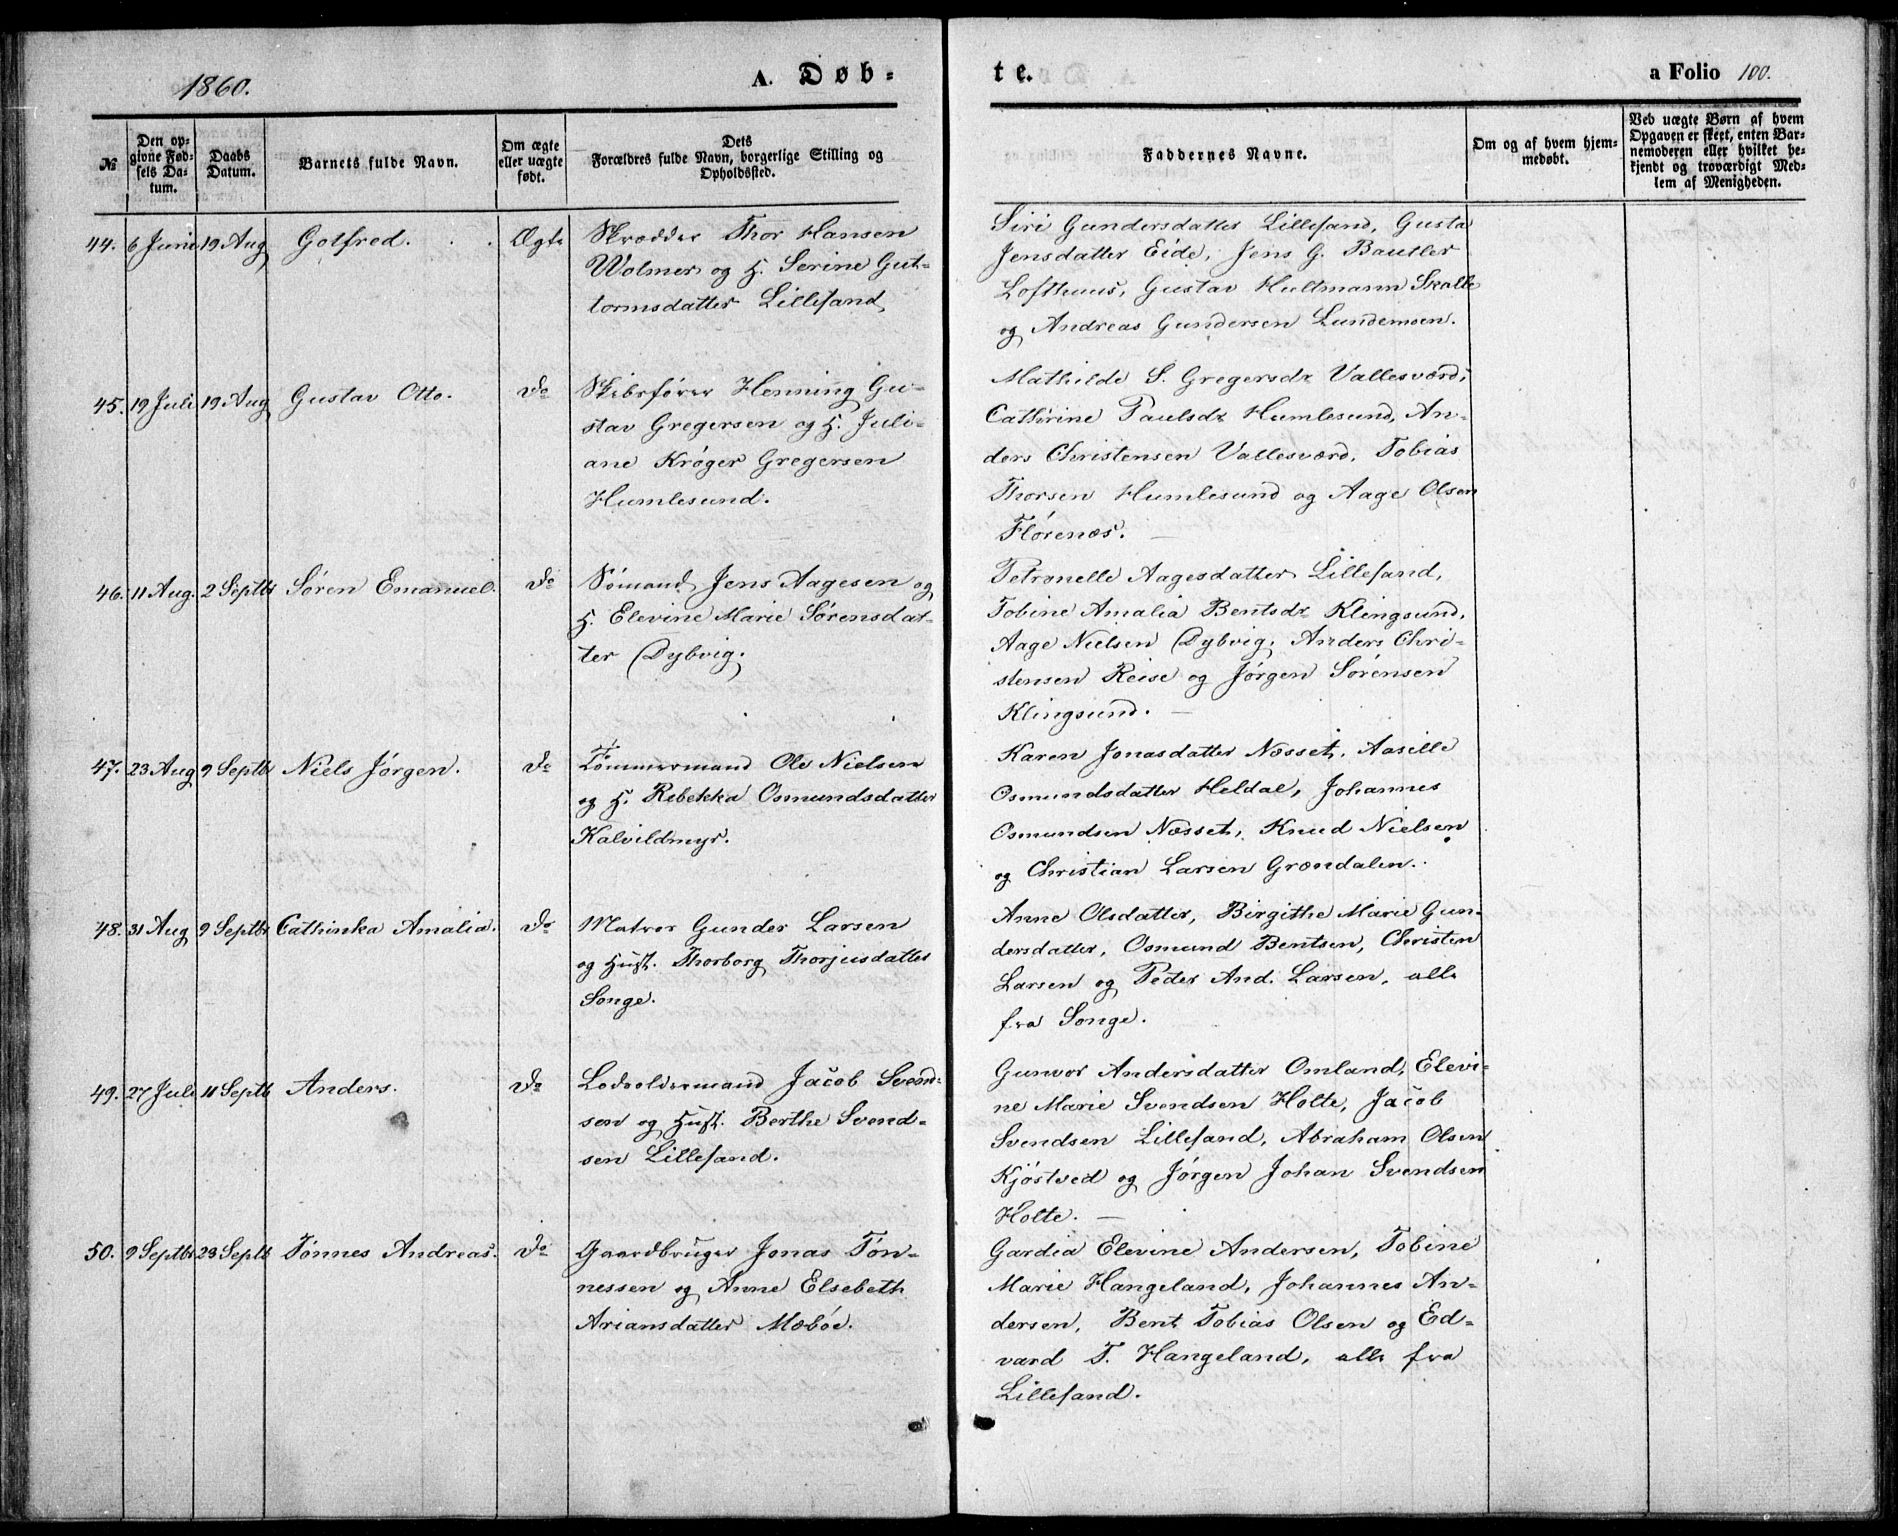 1860.
A. Døb-
te.
a Folio 100.
№
Den op-
givne Fød-
sels Da-
tum.
Daabs
Datum.
Barnets fulde Navn.
Om ægte
eller uægte
født.
Dets
Forældres fulde Navn, borgerlige Stilling og
Opholdssted.
Faddernes Navne.
Om og af hvem hjem-
medøbt.
Ved uægte Børn af hvem
Opgaven er skeet, enten Bar-
nemoderen eller hvilket be-
kjendt og troværdigt Med-
lem af Menigheden.
44. 6 Juni 19 Aug Gotfred. Ægte
Skrædder Thor Hansen
Wolmer og H. Serine Gut-
tormsdatter Lillesand
Siri Gundersdatter Lillesand, Gusta
Jensdatter Eide, Jens G. Bautler
Lofthuus, Gustav Hultmann Skalle
og Andreas Gundersen Lundemoen.
45. 19 Juli 19 Aug Gustav Otto. Do
Skibsfører Henning Gu-
stav Gregersen og H. Juli-
ane Krøger Gregersen
Humlesund.
Mathilde S. Gregersdr Vallesværd,
Cathrine Paulsdr Humlesund, An-
ders Christensen Vallesværd, Tobias
Thorsen Humlesund og Aage Olsen
Flørenæs.
46. 11 Aug. 2 Septbr Søren Emanuel. Do
Sømand Jens Aagesen og
H. Elevine Marie Sørensdat-
ter Dybvig.
Petronelle Aagesdatter Lillesand,
Tobine Amalia Bentsdr Klingsund,
Aage Nielsen Dybvig, Anders Chri-
stensen Reise og Jørgen Sørensen
Klingsund.
47. 23 Aug 9 Septb Niels Jørgen. Do
Tømmermand Ole Nielsen
og H. Rebekka Osmundsdatter
Kalvildmyr.
Karen Jonasdatter Næsset, Aasille
Osmundsdatter Heldal, Johannes
Osmundsen Næsset, Knud Nielsen
og Christian Larsen Grændalen.
48. 31 Aug 9 Septbr Cathinka Amalia. Do
Matros Gunder Larsen
og Hust. Thorborg Thorjusdatter
Songe.
Anne Olsdatter, Birgithe Marie Gun-
dersdatter, Osmund Bentsen, Christen
Larsen og Peder And. Larsen, alle
fra Songe.
49. 27 Juli 11 Septb Anders. Do
Lodsoldermand Jacob Svend-
sen og Hust. Berthe Svend-
sen Lillesand.
Gunvor Andersdatter Omland, Elevi-
ne Marie Svendsen Holte, Jacob
Svendsen Lillesand, Abraham Olsen
Kjøstved og Jørgen Johan Svendsen
Holte.
50. 9 Septbr 23 Septb Tønnes Andreas. Do
Gaardbruger Jonas Tøn-
nessen og Anne Elsebeth
Ariansdatter Mæbøe.
Gardia Elevine Andersen, Tobine
Marie Hangeland, Johannes An-
dersen, Bent Tobias Olsen og Ed-
vard T. Hangeland, alle fra
Lillesand.